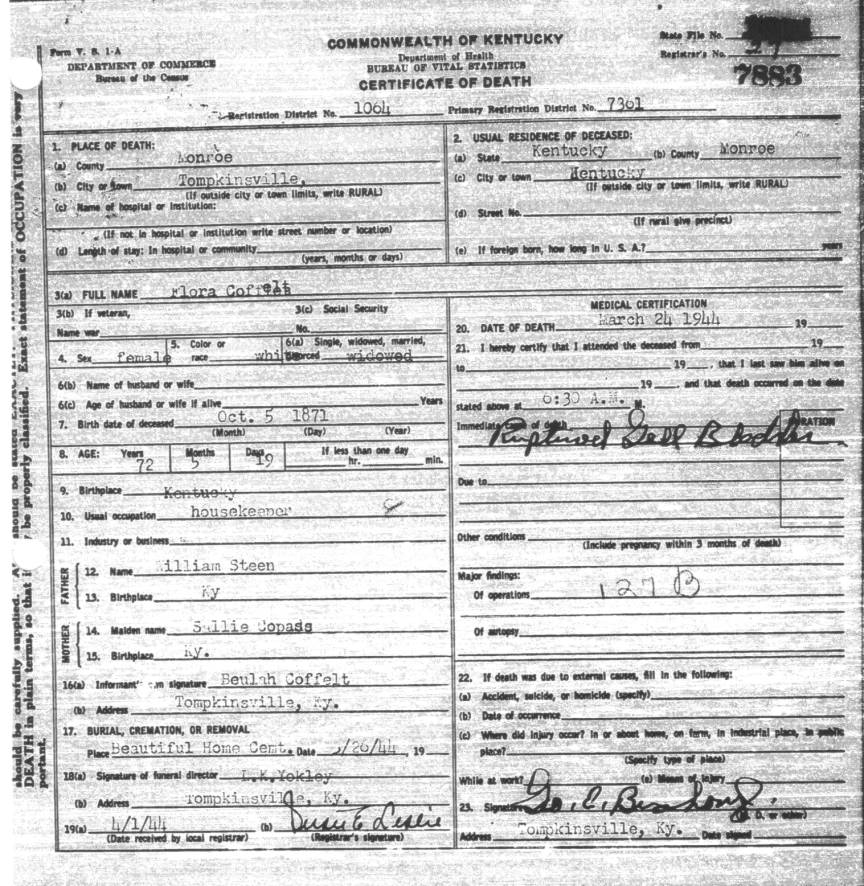 Form V. S. 1-A
DEPARTMENT OF COMMERCE
Bureau of the Census
COMMONWEALTH OF KENTUCKY
Department of Health
BUREAU OF VITAL STATISTICS
CERTIFICATE OF DEATH
State File No.
Registrar's No. 29
7883
Registration District No. 1064 Primary Registration District No. 7361
1. PLACE OF DEATH:
(a) County Monroe
(b) City or town Tompkinsville,
(If outside city or town limits, write RURAL)
(c) Name of hospital or institution:
(If not in hospital or institution write street number or location)
(d) Length of stay: In hospital or community
(years, months or days)
2. USUAL RESIDENCE OF DECEASED:
(a) State Kentucky (b) County Monroe
(c) City or town Kentucky
(If outside city or town limits, write RURAL)
(d) Street No.
(If rural give precinct)
(e) If foreign born, how long in U. S. A.? years
3(a) FULL NAME Flora Coffelt
3(b) If veteran,
Name war
3(c) Social Security
No.
4. Sex female
5. Color or
race white
6(a) Single, widowed, married,
divorced widowed
6(b) Name of husband or wife
6(c) Age of husband or wife if alive Years
7. Birth date of deceased Oct. 5 1871
(Month) (Day) (Year)
8. AGE: Years Months Days If less than one day
72 5 19 hr. min.
9. Birthplace Kentucky
10. Usual occupation housekeeper
11. Industry or business
FATHER
12. Name William Steen
13. Birthplace Ky
MOTHER
14. Maiden name Sallie Copass
15. Birthplace Ky.
16(a) Informant's own signature Beulah Coffelt
(b) Address Tompkinsville, Ky.
17. BURIAL, CREMATION, OR REMOVAL
Place Beautiful Home Cemt. Date /26/44, 19
18(a) Signature of funeral director L.K.Yokley
(b) Address Tompkinsville, Ky.
19(a) 4/1/44 (b) Susie E Leslie
(Date received by local registrar) (Registrar's signature)
MEDICAL CERTIFICATION
20. DATE OF DEATH March 24 1944 19
21. I hereby certify that I attended the deceased from 19
to 19 , that I last saw him alive on
19 , and that death occurred on the date
stated above at 6:30 A.M. M.
Immediate cause of death DURATION
Ruptured Gall Bladder
Due to
Other conditions
(Include pregnancy within 3 months of death)
Major findings:
Of operations 127 B
Of autopsy
22. If death was due to external causes, fill in the following:
(a) Accident, suicide, or homicide (specify)
(b) Date of occurrence
(c) Where did injury occur? In or about home, on farm, in industrial place, in public
place?
(Specify type of place)
While at work? (e) Means of injury
23. Signature Geo. C.
(M. D. or other)
Address Tompkinsville, Ky. Date signed
should be carefully supplied.
DEATH in plain terms, so that
be properly classified. Exact statement of OCCUPATION is very
portant.